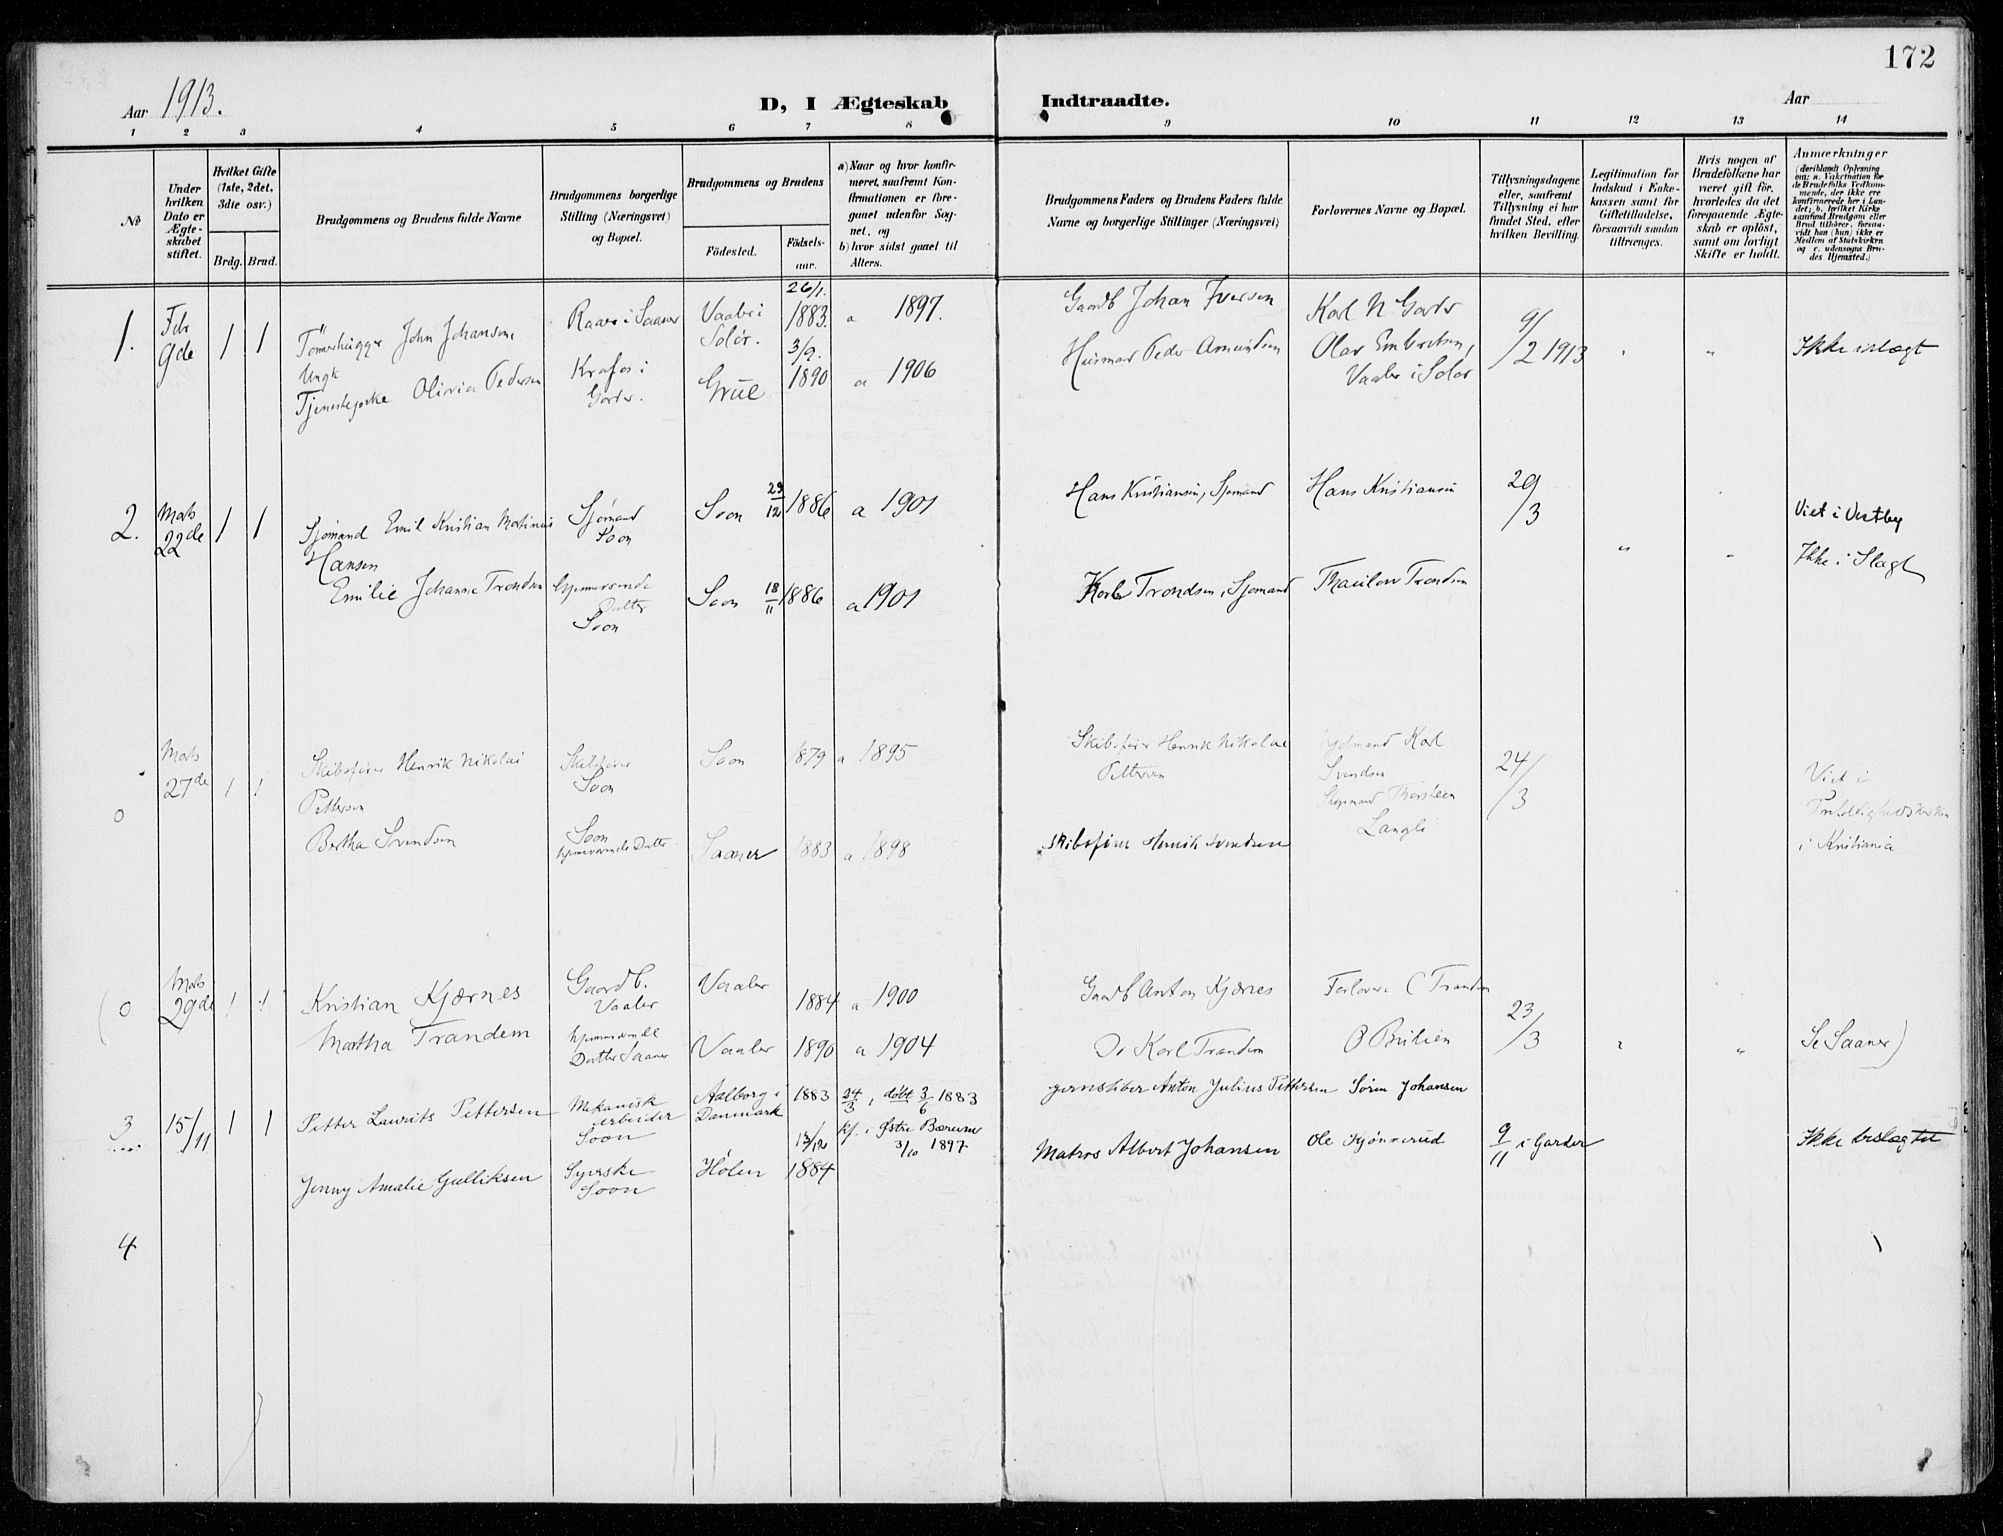 172
Aar 1913.
D, I Ægteskab Indtraadte.
Aar
1 2 3 4 5 6 7 8 9 10 11 12 13 14
No
Under hvilken Dato er Ægteskabet stiftet.
Hvilket Gifte (1ste, 2det, 3dte osv.)
Brdg. Brud.
Brudgommens og Brudens fulde Navne
Brudgommens borgerlige Stilling (Næringsvei) og Bopæl.
Brudgommens og Brudens
Födested.
Födselsaar.
a) Naar og hvor konfirmeret, saafremt Konfirmationen er foregaaet udenfor Sognet, og
b) hvor sidst gaaet til Alters.
Brudgommens Faders og Brudens Faders fulde Navne og borgerlige Stillinger (Næringsvei)
Forlovernes Navne og Bopæl.
Tillysningsdagene eller, saafremt Tillysning ei har fundet Sted, efter hvilken Bevilling.
Legitimation for Indskud i Enkekassen samt for Giftetilladelse, forsaavidt saadan tiltrænges.
Hvis nogen af Brudefolkene har været gift før, hvorledes da det foregaaende Ægteskab er oplöst, samt om lovligt Skifte er holdt.
Anmærkninger
(deriblandt Oplysning om: a. Vakcination for de Brudefolks Vedkommende, der ikke ere konfirmerede her i Landet; b. hvilket Kirkesamfund Brudgom eller Brud tilhører, forsaavidt han (hun) ikke er Medlem af Statskirken og c. udensogns Brudes Hjemsted.)
1. Feb 9de 1 1
Tømmerhugger John Johansen
Raaer i Saaner
Vaaler i Solør.
26/1. 1883. a 1897.
Gaardb Johan Iversen
Karl N Garder
9/2 1913
Ikke i slægt
Ungk
Tjenestepike Olivia Pedersen
Krafos i Garder.
Grue
3/9. 1890 a 1906
Husmand Peder Amundsen
Olav Embretsen,
Vaaler i Solør
2. Marts 22de 1 1
Sjømand Emil Kristian Martinius Hansen
Sjømand Soon
Soon 29/12 1886 a 1901
Hans Kristiansen, Sjømand
Hans Kristiansen
29/3
Viet i Vestby
Ikke i Slægt
Emilie Johanne Trondsen
hjemmeværende Datter Soon
Soon 18/11 1886 a 1901
Karl Trondsen, Sjømand
Thaulow Trondsen
0 Marts 27de 1 1
Skibsfører Henrik Nikolai Pettersen
Skibsfører Soon
Soon 1879 a 1895
Skibsfører Henrik Nikolai Pettersen
Sjømand Karl Svendsen
Sjømand Thorsteen Langli
24/3
Viet i
Trefoldighedskirken
i Kristiania
Bertha Svendsen
Soon hjemmeværende Datter
Saaner 1883 a 1898
Skibsfører Henrik Svendsen
( 0 Marts 29de 1 1
Kristian Kjærnes
Gaardb. Vaaler
Vaaler 1884 a 1900
Gaardb Anton Kjærnes
Forlovere C Trandem
23/3
Se Saaner )
Martha Trandem
hjemmeværende Datter Saaner
Vaaler 1890 a 1904
Do Karl Trandem
3 15/11 1 1
Petter Laurits Pettersen
Mekanisk arbeider Soon
Aalborg i Danmark
1883 24/3, døbt 3/6 1883
kf. i Østre Bærum 3/10 1897
jernstøber Anton Julius Pettersen
Søren Johansen
9/11 i Garder
Ikke beslægtet
Jenny Amalie Gulliksen
Syerske Soon
Hølen
13/12 1884
Matros Albert Johansen
Ole Kjønnerud
4